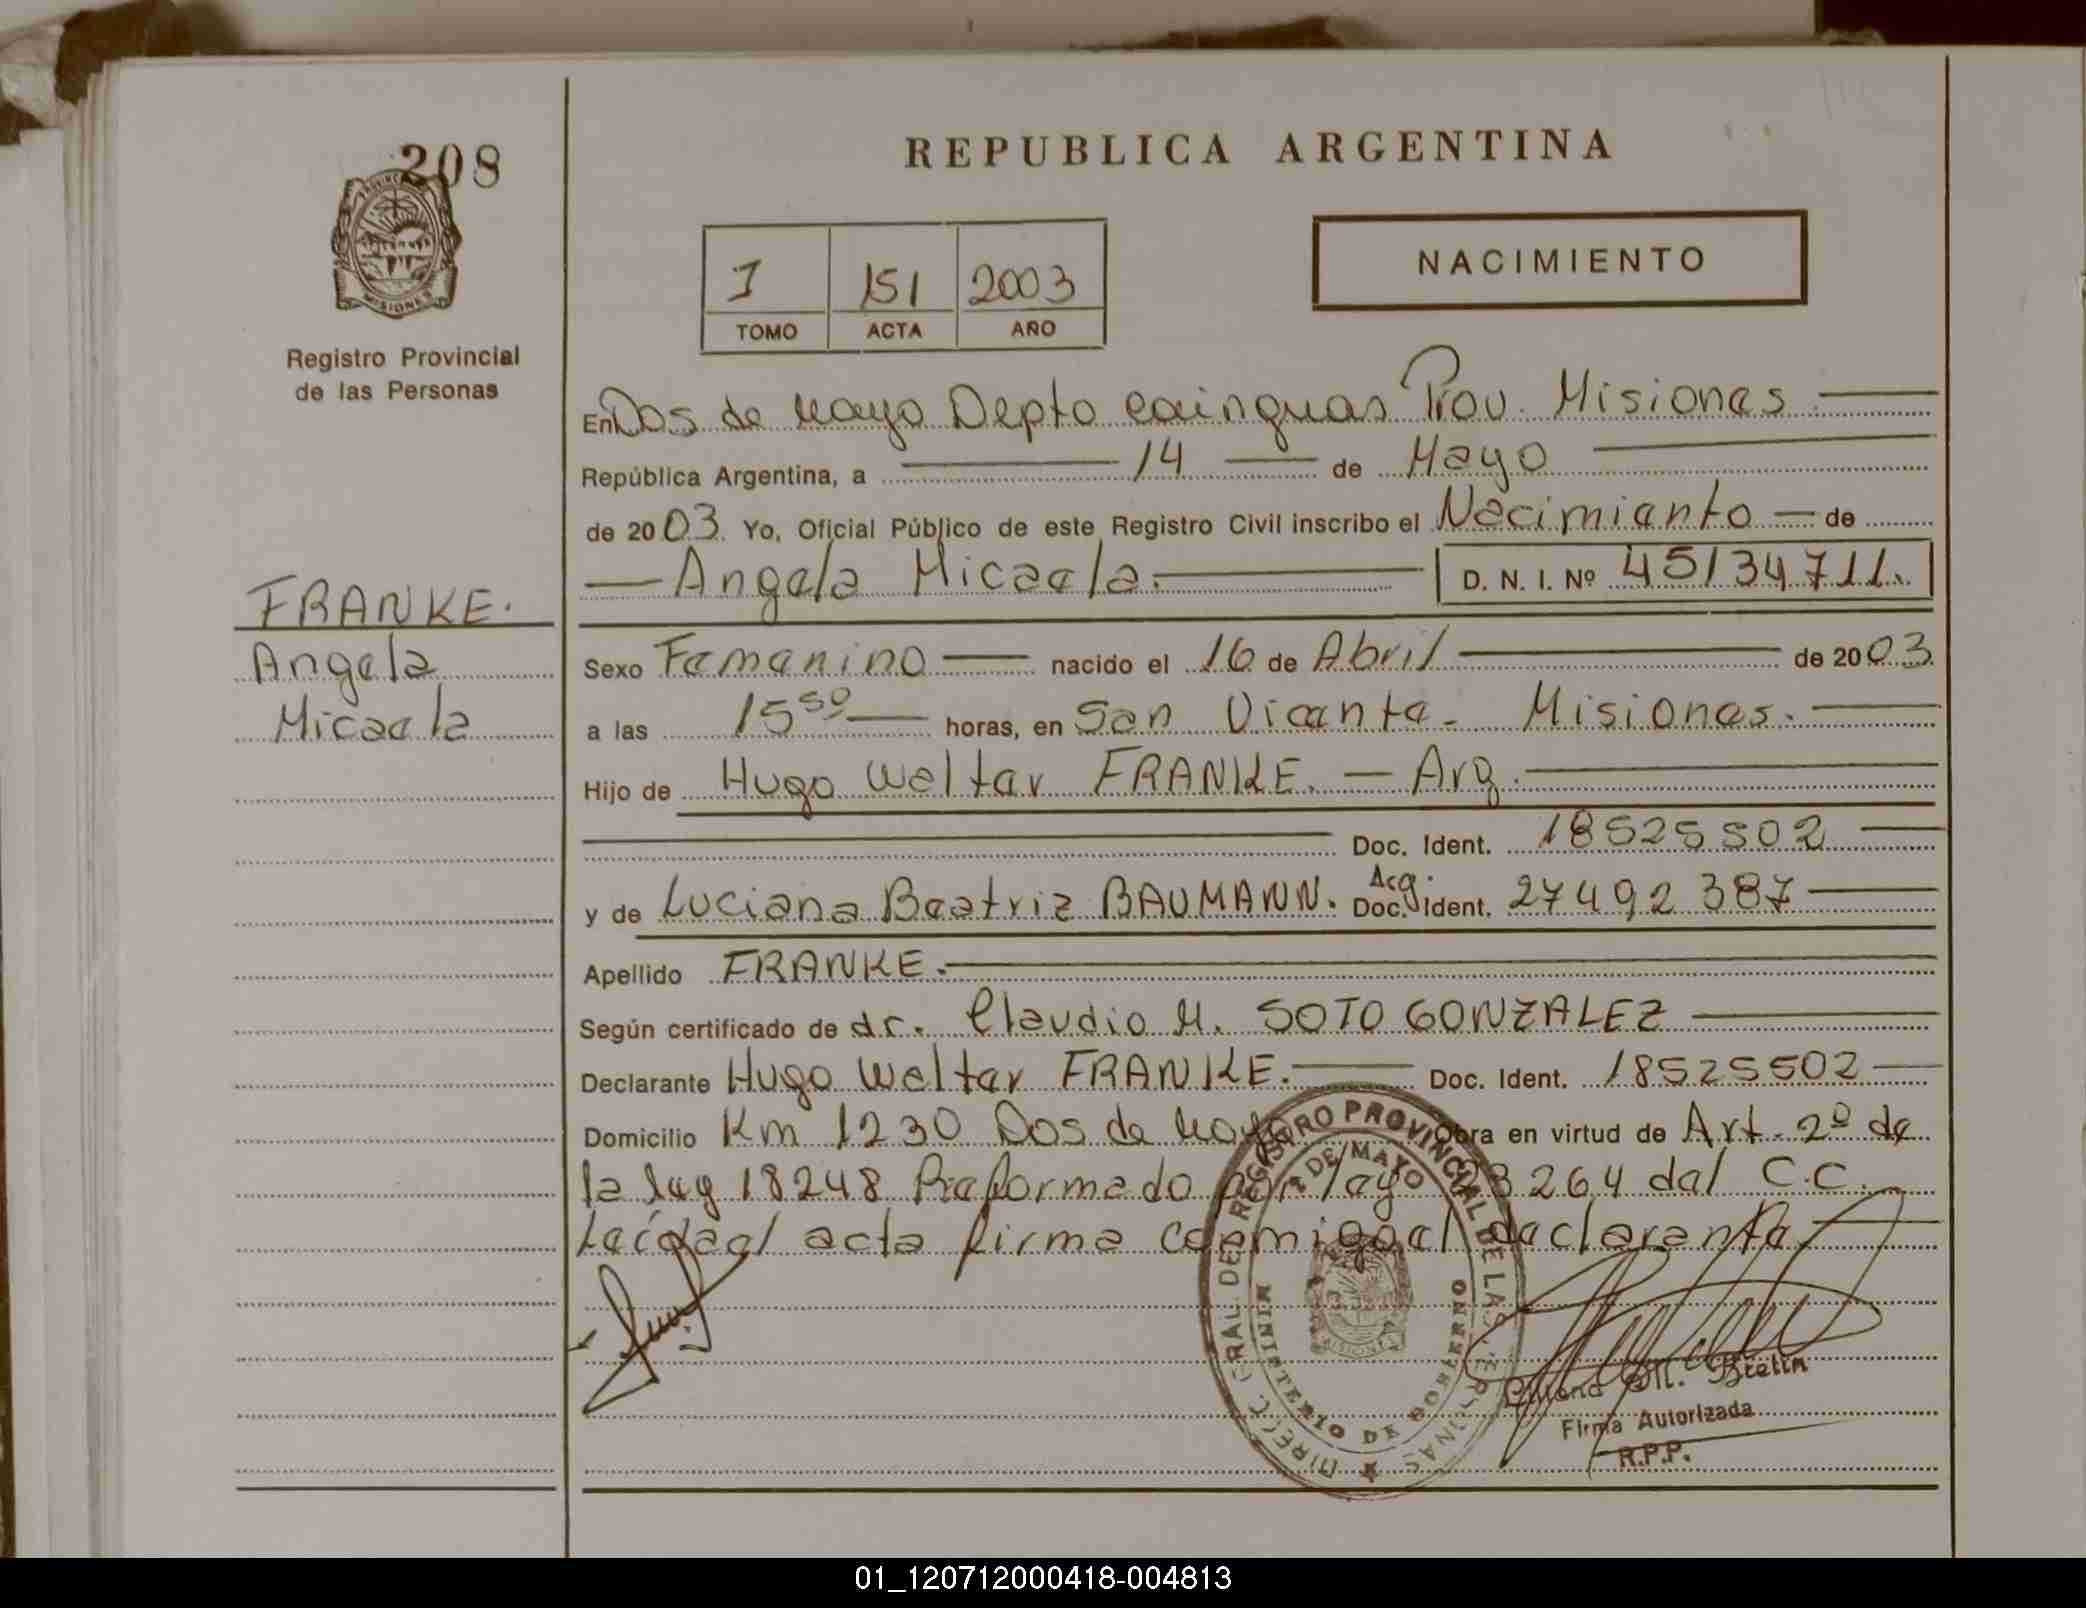 208
REPUBLICA ARGENTINA
PROVINCIA
MISIONES
Registro Provincial
de las Personas
I 151 2003
TOMO ACTA AÑO
NACIMIENTO
En Dos de Mayo Depto Cainguas Prov. Misiones
República Argentina, a 14 de Mayo
de 2003 Yo, Oficial Público de este Registro Civil inscribo el Nacimiento de
Angela Micaela. D. N. I. Nº 45134711.
FRANKE.
Angela
Micaela
Sexo Femenino nacido el 16 de Abril de 2003
a las 15 50 horas, en San Vicente - Misiones.
Hijo de Hugo Welter FRANKE. - Arg.
Doc. Ident. 18525502
y de Luciana Beatriz BAUMANN. Arg. Doc. Ident. 27492387
Apellido FRANKE.
Según certificado de dr. Claudio M. SOTO GONZALEZ
Declarante Hugo Welter FRANKE. Doc. Ident. 18525502
Domicilio Km 1230 Dos de Mayo Obra en virtud de Art. 2º de
la ley 18248 Reformado por ley 23264 del C.C.
Leída el acta firma conmigo el declarante.
DIRECC. GRAL. DEL REGISTRO PROVINCIAL DE LAS PERSONAS
2 DE MAYO
MINISTERIO DE GOBIERNO
MISIONES
Firma Autorizada
R.P.P.
01_120712000418-004813